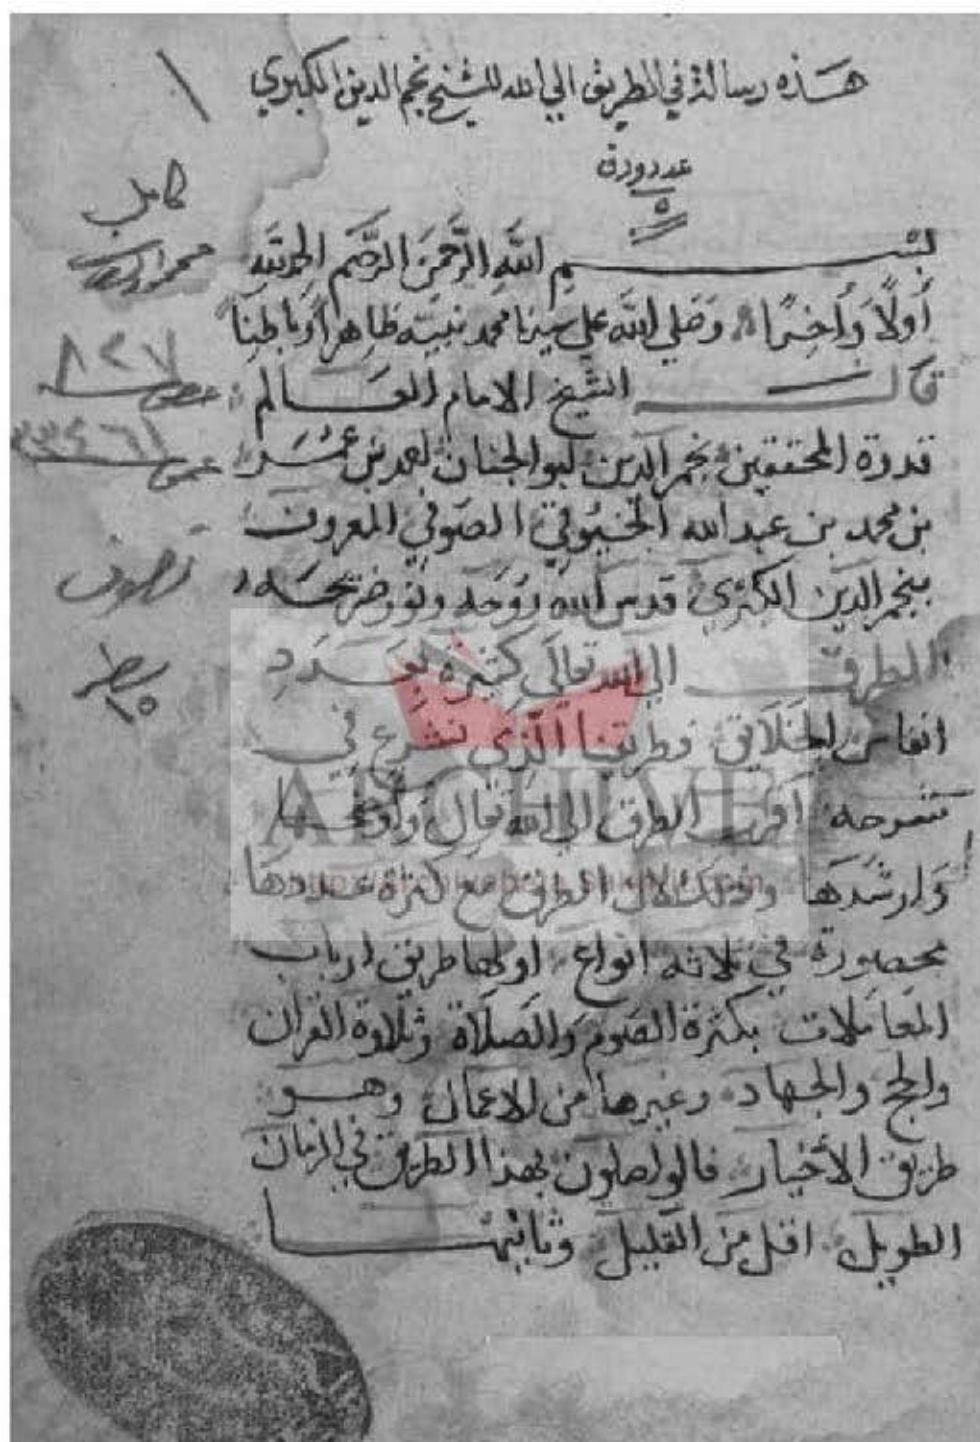 هذه رسالة في الطريق الي الله للشيخ نجم الدين الكبري
١
عدد ورق
٥
كامل
بسم الله الرحمن الرحيم الحمد لله
أولا وأخرا وصلي الله علي سيدنا محمد نبيه ظاهرا وباطنا
٨٢٧
قال الشيخ الامام العالم
قدوة المحققين نجم الدين ابو الجنان احمد بن عمر
بن محمد بن عبد الله الخيوقي الصوفي المعروف
بنجم الدين الكبري قدس الله روحه ونور ضريحه
تصوف
الطرق الي الله تعالي كثيرة بعدد
سطر
١٥
انفاس الخلايق وطريقنا الذي نشرع في
شرحه اقرب الطرق الي الله تعالي وأوضحها
وارشدها وذلك لان الطرق مع كثرة عددها
محصورة في ثلاثه انواع اولها طريق ارباب
المعاملات بكثرة الصوم والصلاة وتلاوة القران
والحج والجهاد وغيرها من الاعمال وهو
طريق الأخيار فالواصلون بهذا الطريق في الزمان
الطويل اقل من القليل وثانيها
ARCHIVE